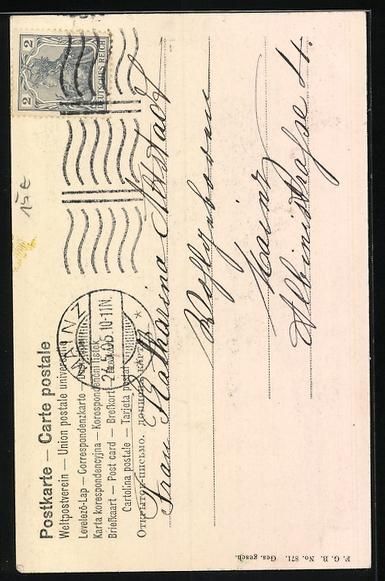 Postkarte — Carte postale
Weltpostverein — Union postale universelle
Levelező-Lap — Correspondenzkarte
Karta korespondencyjna — Korespondenční lístek
Briefkaart — Post card — Brefkort
Cartolina postale — Tarjeta postal
Открытое письмо.
MAINZ
24.5.05. 10-11 N.
*
2 2
DEUTSCHES REICH
Frau Katharina
Wohlgeboren
Mainz
Albinistraße 4.
15 €
P. G. B. No. 871. Ges. gesch.